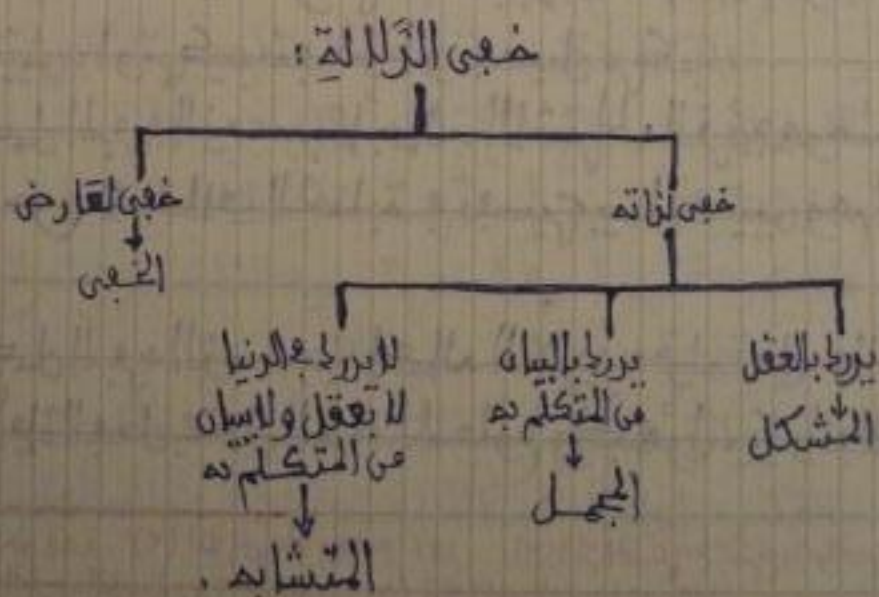 خفي الدَّلالةِ :
خفي لذاته
خفي لعارض
الخفي
يدرك بالعقل
المشكل
يدرك بالبيان
من المتكلم به
المجمل
لا يدرك في الدنيا
لا بعقل ولا ببيان
من المتكلم به
المتشابه .